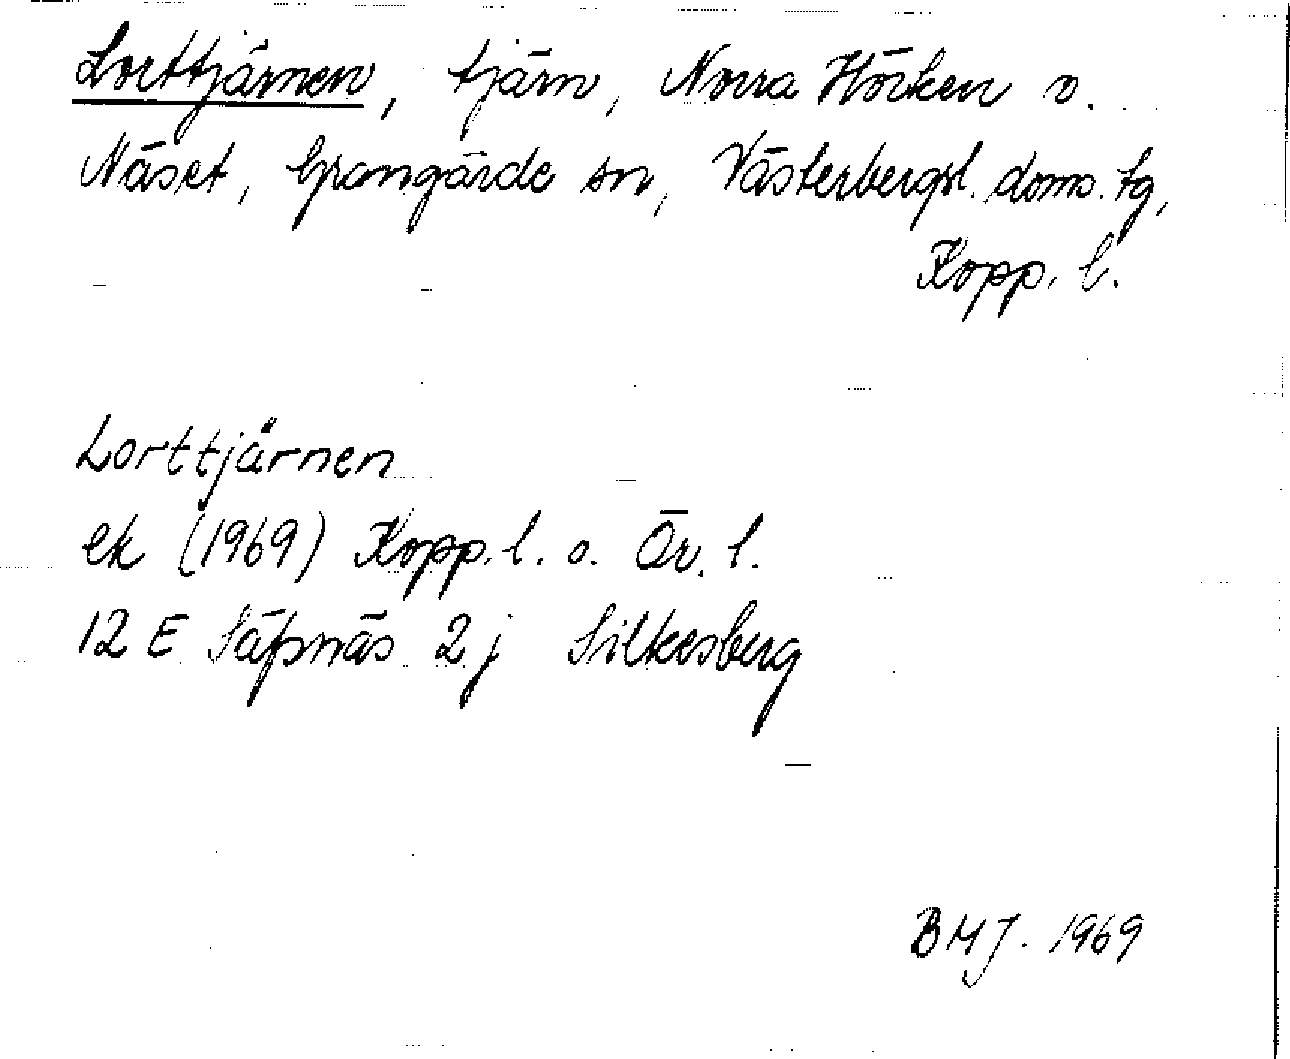 Lorttjärnen, tjärn, Norra Hörken o.
Näset, Grangärde sn, Västerbergsl. doms. tg,
Kopp. l.
Lorttjärnen
ek (1969) Kopp. l. o. Ör. l.
12 E Säfsnäs 2 j Silkesberg
BMJ. 1969